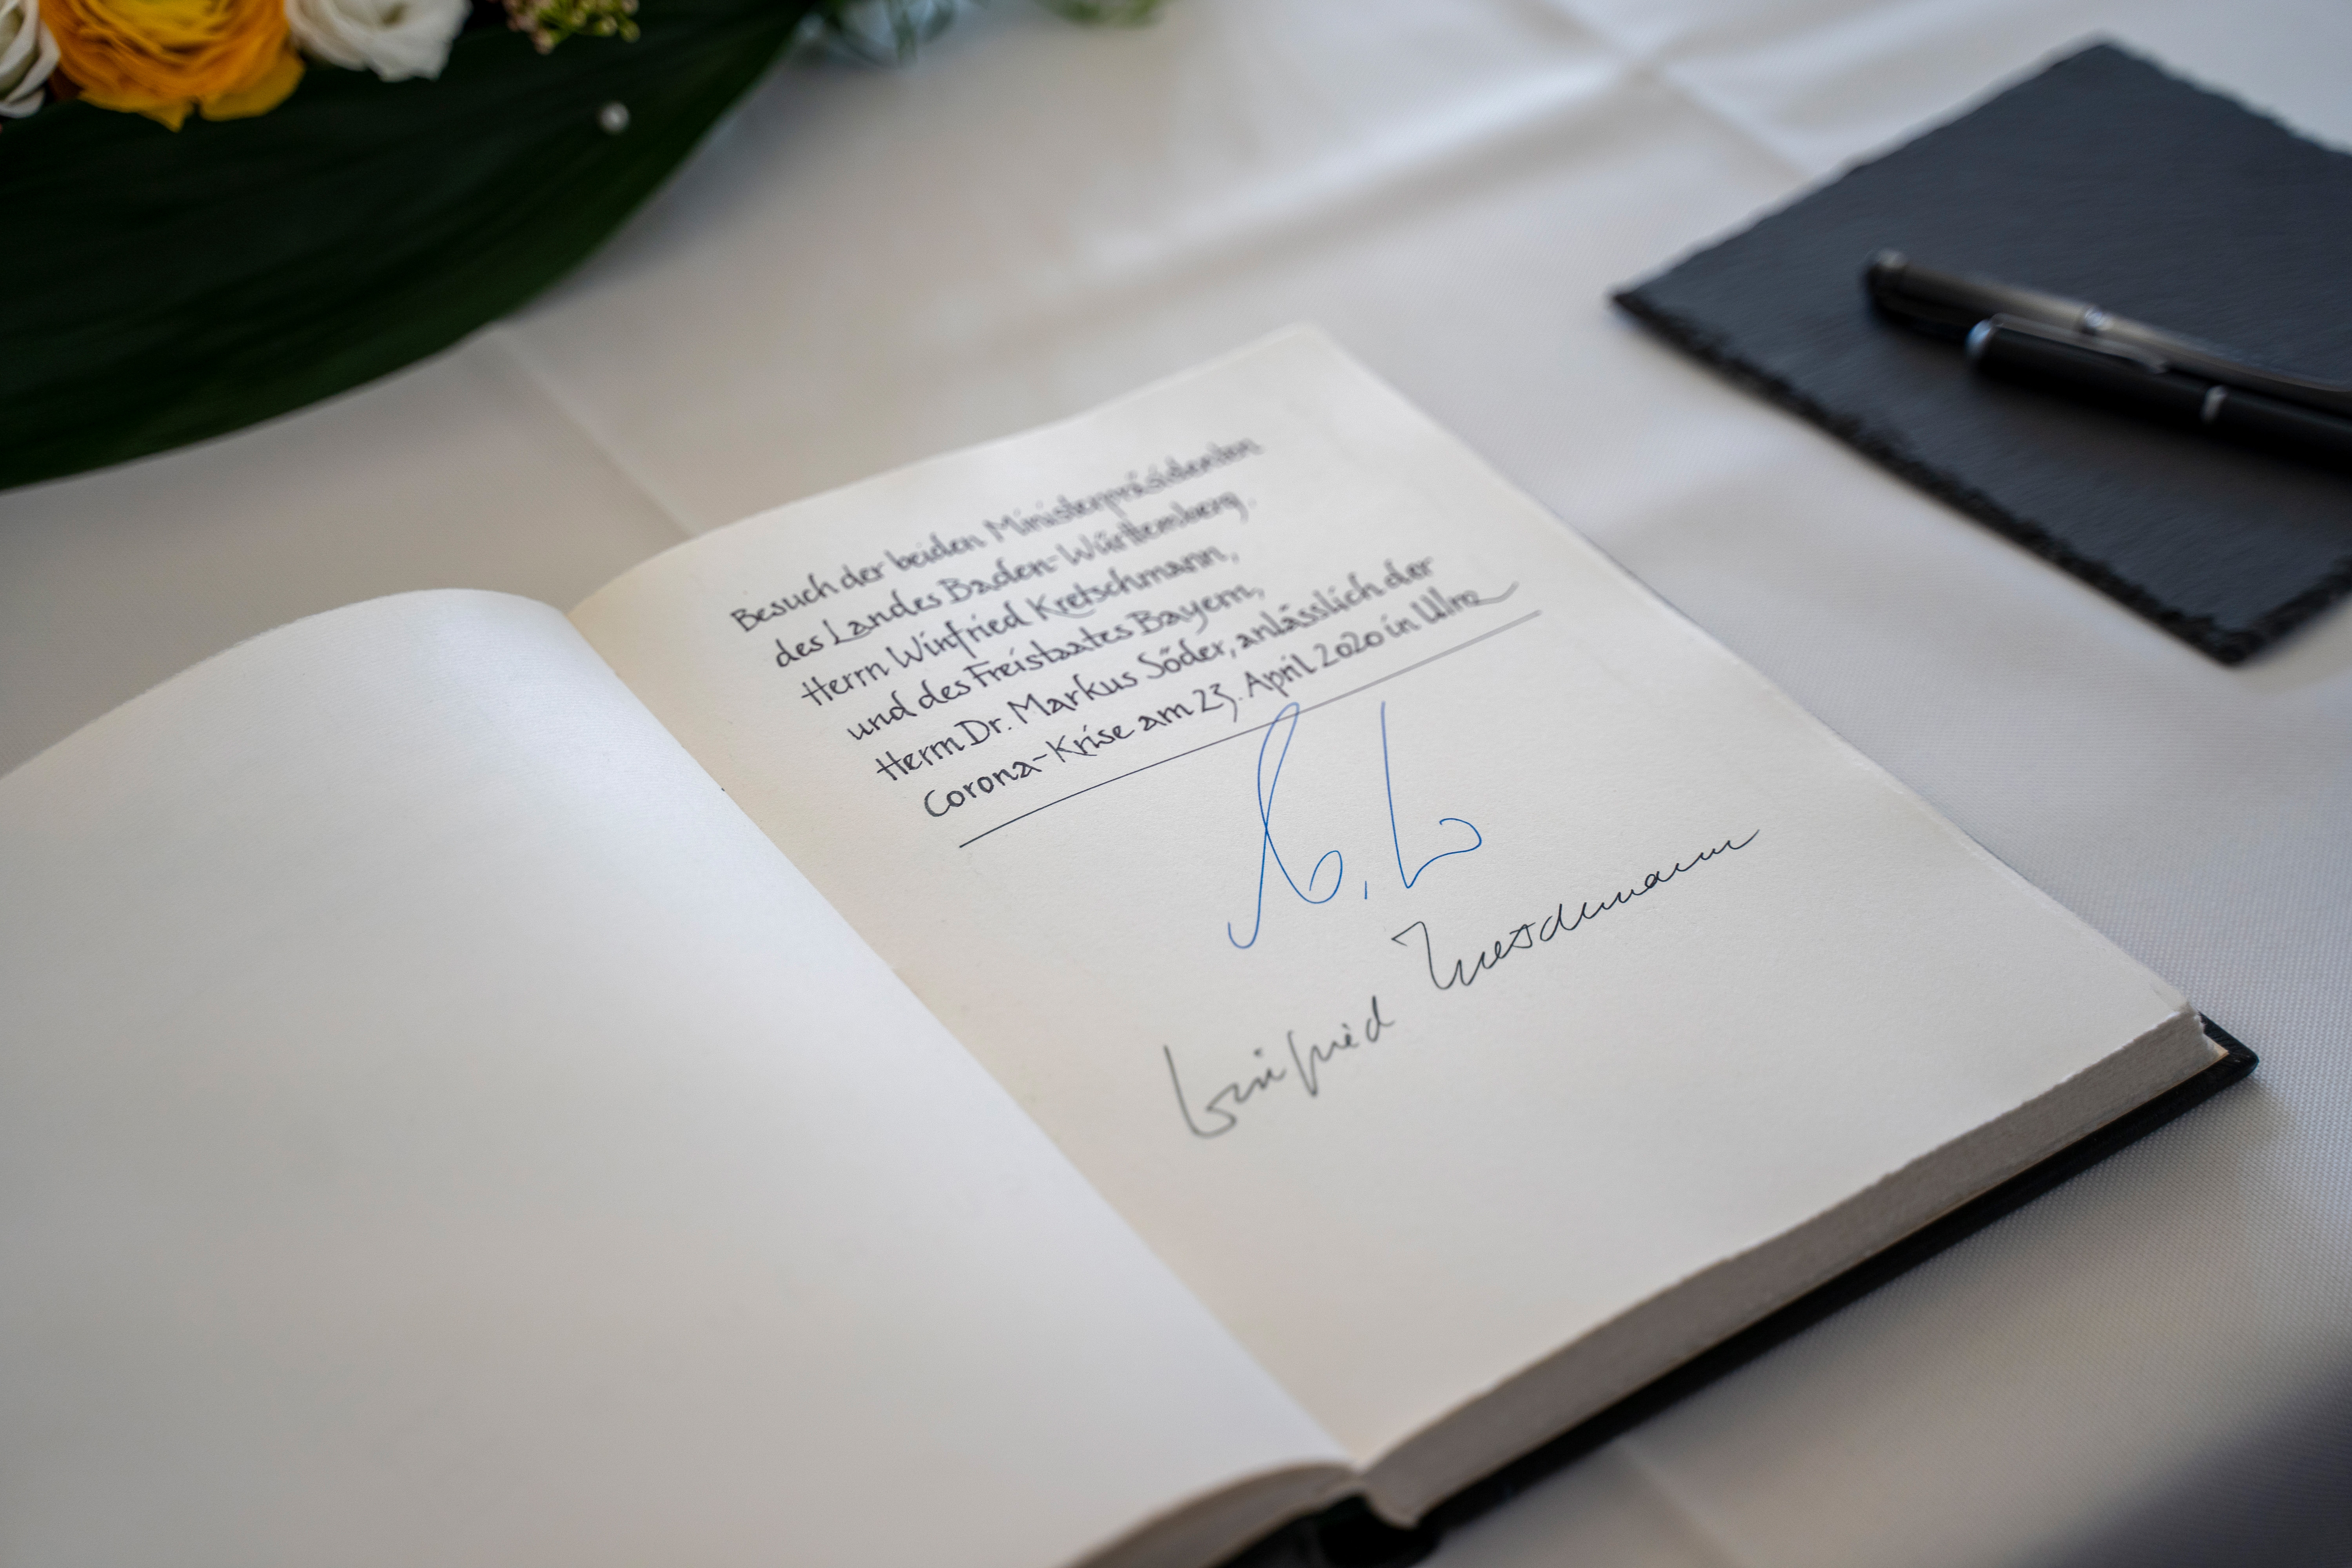 Besuch der beiden Ministerpräsidenten
des Landes Baden-Württemberg,
Herrn Winfried Kretschmann,
und des Freistaates Bayern,
Herrn Dr. Markus Söder, anlässlich der
Corona-Krise am 23. April 2020 in Ulm
Winfried Kretschmann